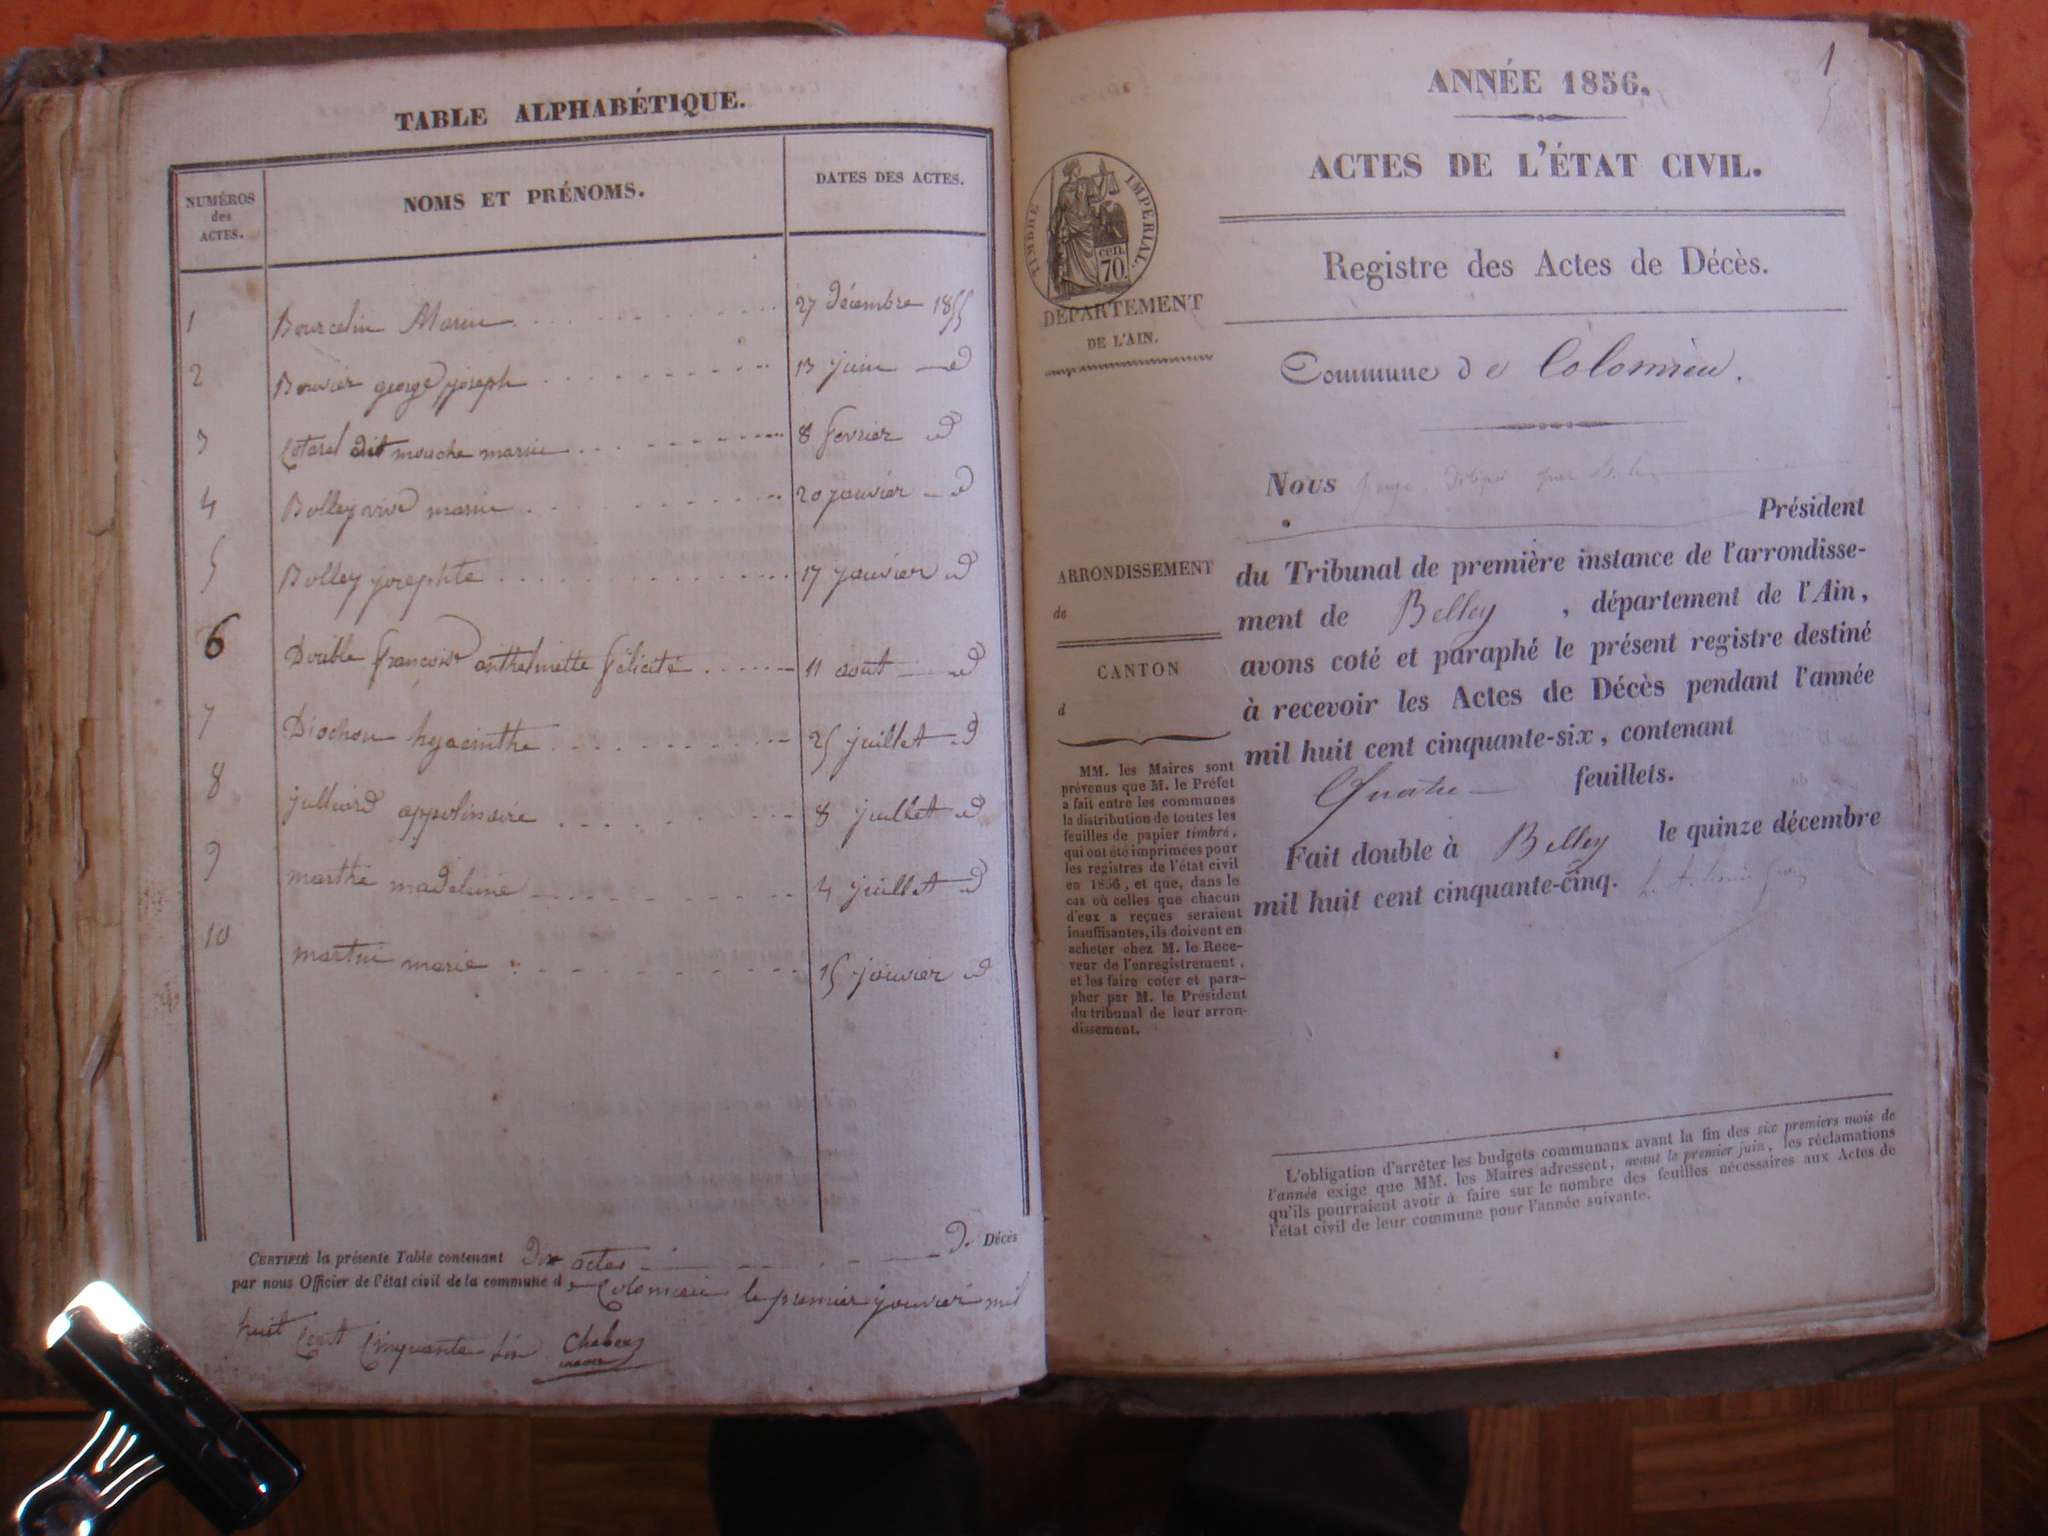 TABLE ALPHABÉTIQUE.
NUMÉROS des ACTES. NOMS ET PRÉNOMS. DATES DES ACTES.
1 Bourcelin Marie 27 décembre 1855
2 Bouvier george joseph 13 juin d
3 Cotarel dit mouche marie 8 fevrier d
4 Bolley vive marie 20 janvier d
5 Bolley josephte 17 janvier d
6 Double françoise anthelmette félicité 11 aout d
7 Diochon hyacinthe 25 juillet d
8 julliard appolinaire 8 juillet d
9 marthe madeleine 4 juillet d
10 martin marie 15 janvier d
CERTIFIÉ la présente Table contenant Dix actes D. Décès
par nous Officier de l'état civil de la commune de Colomieu le premier janvier mil
huit Cent Cinquante Six
1
ANNÉE 1856.
ACTES DE L'ÉTAT CIVIL.
TIMBRE IMPERIAL.
cen. 70.
Registre des Actes de Décès.
DÉPARTEMENT
DE L'AIN.
Commune de Colomieu.
Nous
Président
ARRONDISSEMENT
de
CANTON
d
du Tribunal de première instance de l'arrondisse-
ment de Belley , département de l'Ain,
avons coté et paraphé le présent registre destiné
à recevoir les Actes de Décès pendant l'année
mil huit cent cinquante-six, contenant
Quatre feuillets.
Fait double à Belley le quinze décembre
mil huit cent cinquante-cinq.
MM. les Maires sont
prévenus que M. le Préfet
a fait entre les communes
la distribution de toutes les
feuilles de papier timbré,
qui ont été imprimées pour
les registres de l'état civil
en 1856, et que, dans le
cas où celles que chacun
d'eux a reçues seraient
insuffisantes, ils doivent en
acheter chez M. le Rece-
veur de l'enregistrement,
et les faire coter et para-
pher par M. le Président
du tribunal de leur arron-
dissement.
L'obligation d'arrêter les budgets communaux avant la fin des six premiers mois de
l'année exige que MM. les Maires adressent, avant le premier juin, les réclamations
qu'ils pourraient avoir à faire sur le nombre des feuilles nécessaires aux Actes de
l'état civil de leur commune pour l'année suivante.